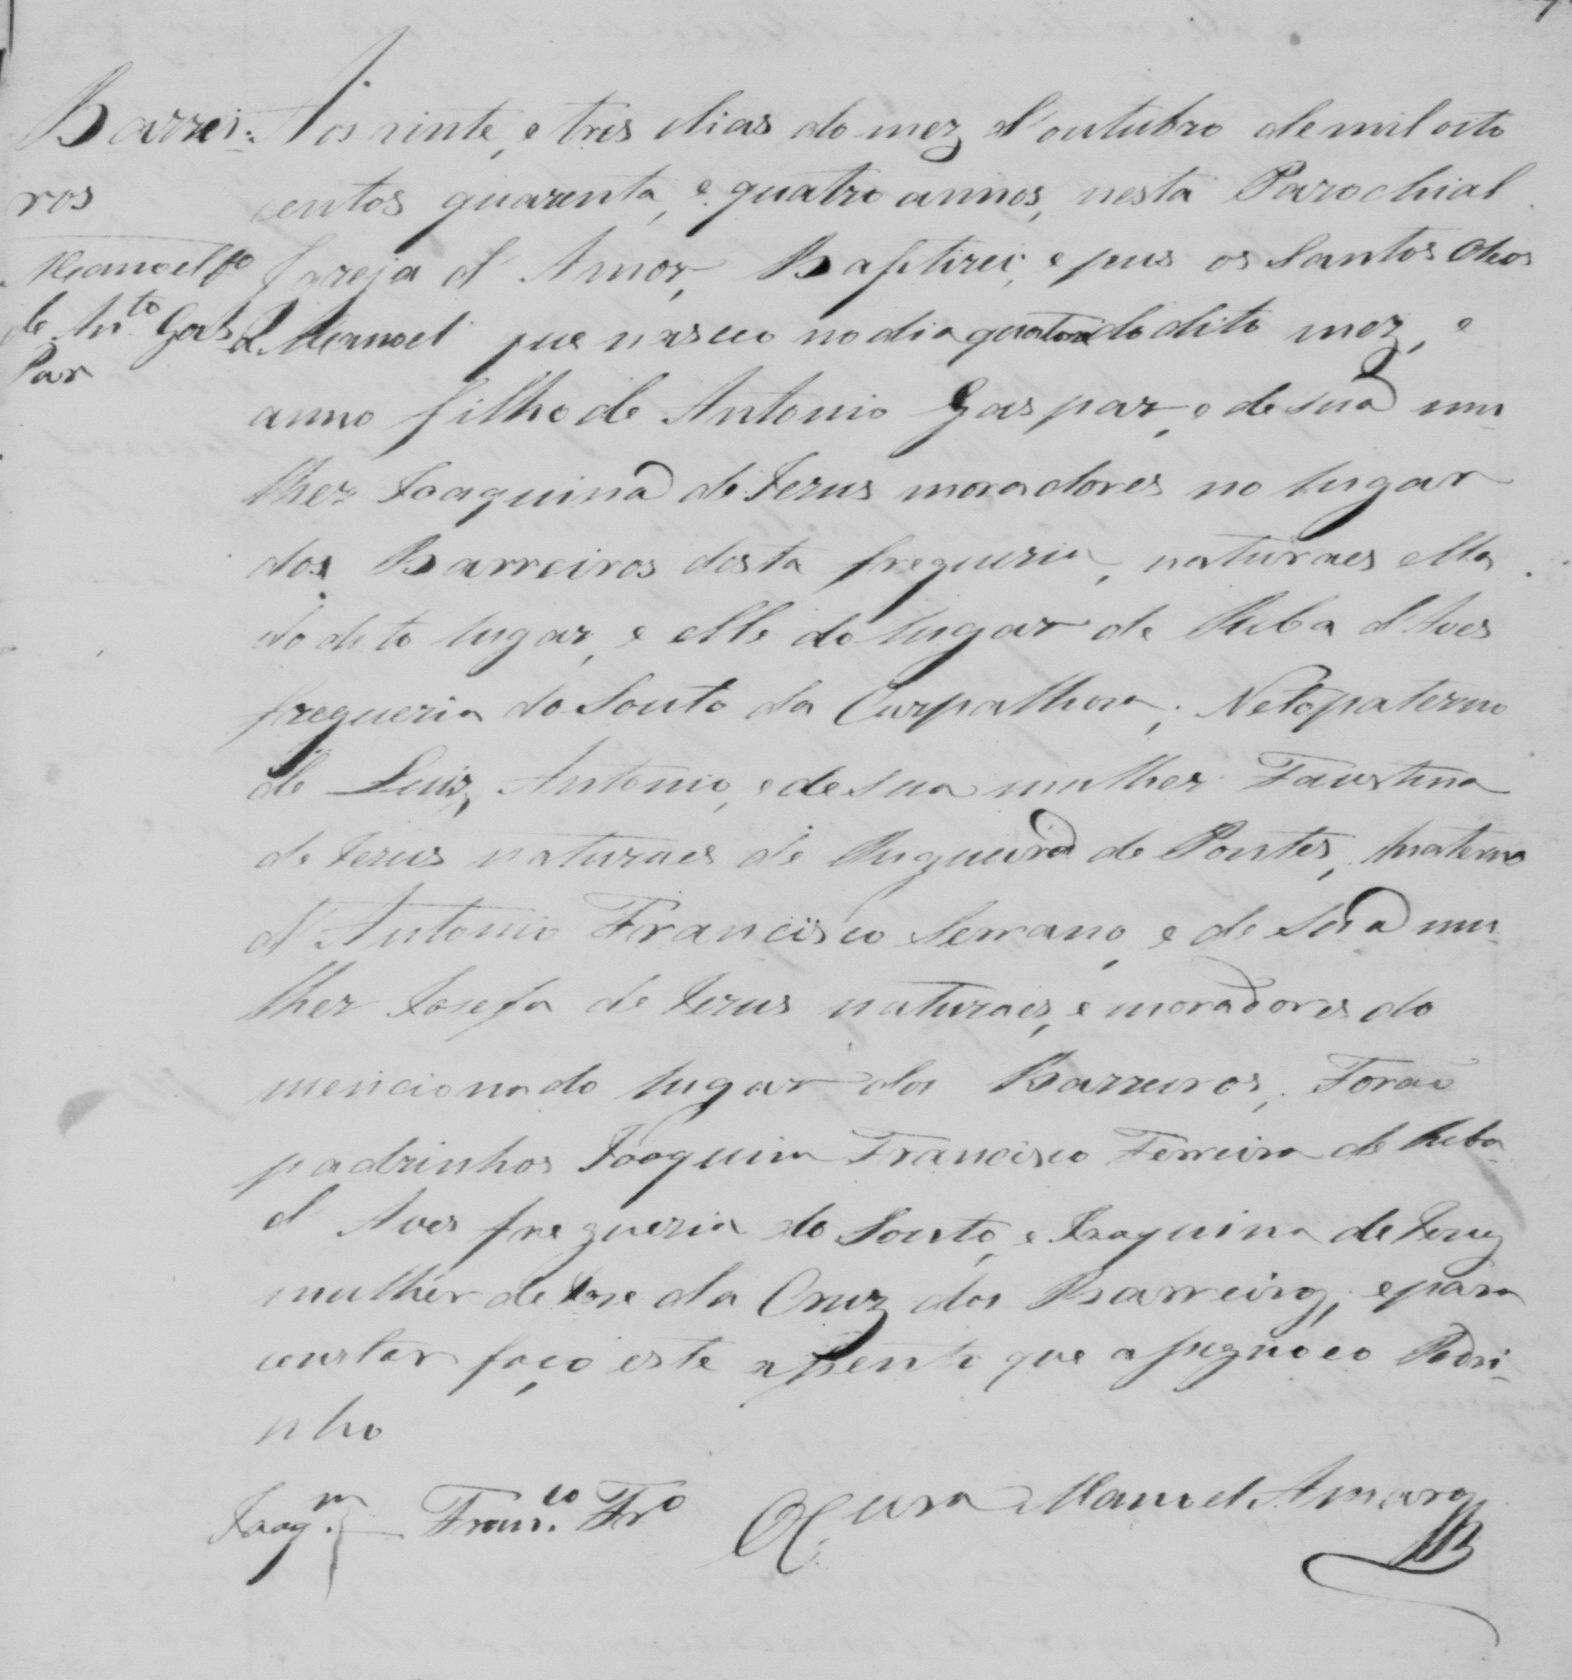 Barrei-
ros
Manoel fo
de Anto Gas
Par
Aos vinte, e tres dias do mez d'outubro de mil oito
centos quarenta, e quatro annos, nesta Parochial
Igreja d' Amor, Baptizei, e pus os Santos Oleos
a Manoel que nasceo no dia quatorze do dito mez, e
anno filho de Antonio Gaspar, e de sua mu-
lher Joaquina de Jezus moradores no lugar
dos Barreiros desta freguezia, naturaes ella
do dito lugar, e elle do lugar de Riba d'Aves
freguezia do Souto da Carpalhoza; Neto paterno
de Luiz Antonio, e de sua mulher Faustina
de Jezus naturaes de de Pontes, materno
d'Antonio Francisco Serrano, e de sua mu-
lher Josefa de Jezus naturaes, e moradores do
mencionado lugar dos Barreiros; Forão
padrinhos Joaquim Francisco Ferreira de Riba
d' Aves freguezia do Souto, e Joaquina de Jezus
mulher de Jose da Cruz dos Barreiros; e para
constar faço este assento que assignoco Padri-
nho
Joaqm Franco Fro O Cura Manoel Amaro